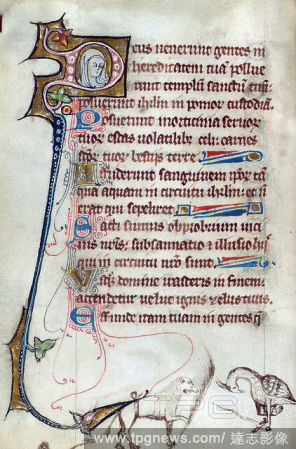 eus venerunt gentes in
hereditatem tuā pollue
runt templū sanctū tuū
posuerunt ihrlm in pomor custodiā
Posuerunt morticina servor
tuor escas volatilibz celi: carnes
scōr tuor bestijs terre
Effuderunt sanguinem ipōr tā
quā aquam in circuitu ihrlm: et nō
erat qui sepeliret
Facti sumus obprobrium vici
nis nrīs: subsannatio et illusio hijs
qui in circuitu nrō sunt
Usqz domine irasceris in finem:
accendetur velut ignis zelus tuus
Effunde iram tuam in gentes q̄
TPG
www.tpgnews.com / 達志影像